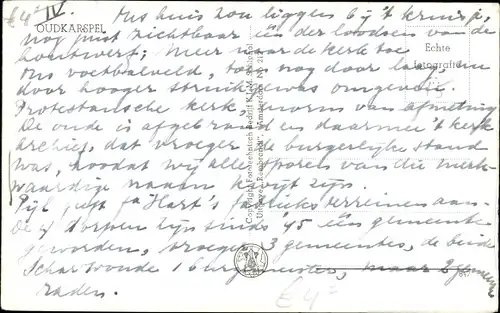 €4² IV.
OUDKARSPEL
Ons huis zou liggen bij 't kruisje,
nog juist zichtbaar is een der loodsen van de
houtwerf; Meer naar de kerk toe
ons voetbalveld, toen nog door laag,
door hooger struikgewas omgeven.
Protestantsche kerk, enorm van afmeting
De oude is afgebrand en daarmee 't kerk
archief, dat vroeger de burgerlijke stand
was, zoodat wij alle sporen van die merk-
waardige namen kwijt zijn.
Pijl, wijst fa Hart's fabrieksterreinen aan-
De 4 dorpen zijn sinds '45 één gemeente
geworden, vroeger 3 gemeentes, de beide
Scharwoude 1 burgemeester, maar 2 gemeente
raden.
Echte
fotografie
Copyright Fototechnisch Bedrijf K.L.M. Schiphol
Uitgave „Rembrandt" Amsterdam
€4²